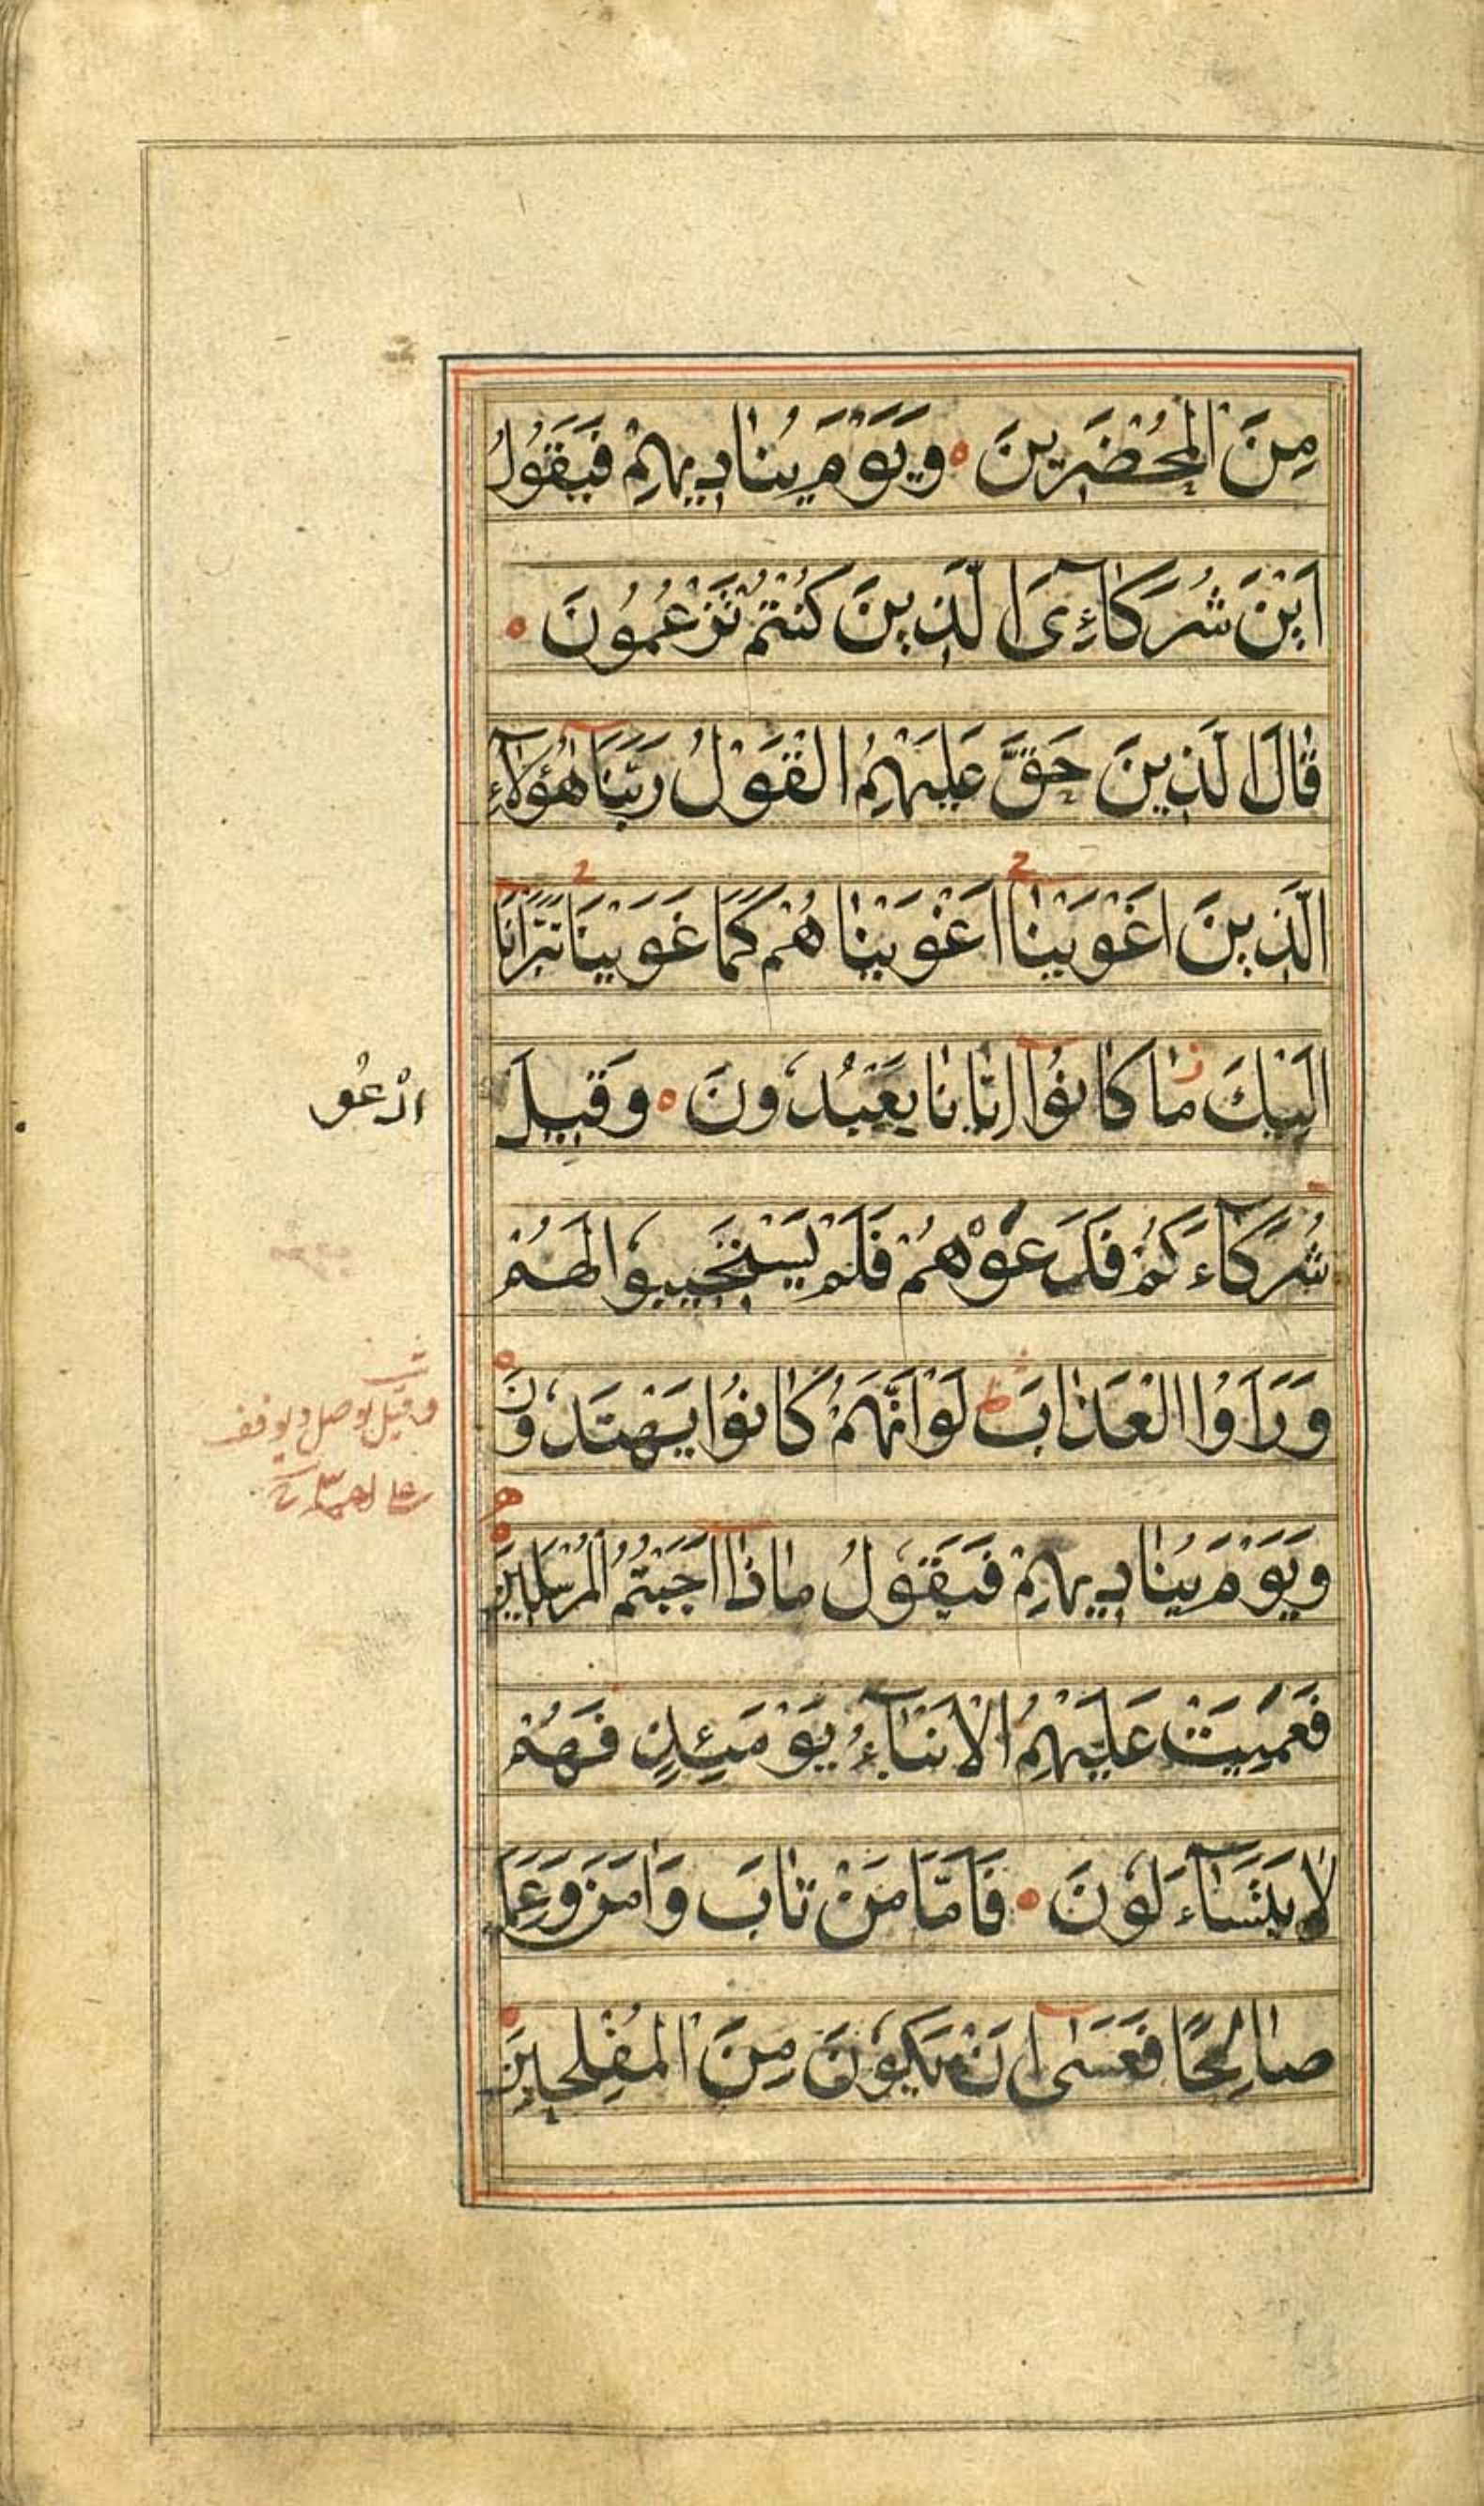 مِنَ الْمُحْضَرِينَ ە وَيَوْمَ يُنَادِيهِمْ فَيَقُولُ
اَيْنَ شُرَكَاۤءِىَ الَّذِينَ كُنْتُمْ تَزْعُمُونَ ە
قَالَ الَّذِينَ حَقَّ عَلَيْهِمُ الْقَوْلُ رَبَّنَا هٰؤُلَاۤءِ
الَّذِينَ اَغْوَيْنَا اَغْوَيْنَاهُمْ كَمَا غَوَيْنَا تَبَرَّانَا
اِلَيْكَ ز مَا كَانُوا اِيَّانَا يَعْبُدُونَ ە وَقِيلَ
ادْعُو
شُرَكَاۤءَكُمْ فَدَعَوْهُمْ فَلَمْ يَسْتَجِيبُوا لَهُمْ
وَرَاَوُا الْعَذَابَ ط لَوْ اَنَّهُمْ كَانُوا يَهْتَدُونَ ە
وَيَوْمَ يُنَادِيهِمْ فَيَقُولُ مَاذَا اَجَبْتُمُ الْمُرْسَلِينَ
فَعَمِيَتْ عَلَيْهِمُ الْاَنْبَاۤءُ يَوْمَئِذٍ فَهُمْ
لَا يَتَسَاۤءَلُونَ ە فَاَمَّا مَنْ تَابَ وَاٰمَنَ وَعَمِلَ
صَالِحًا فَعَسٰى اَنْ يَكُونَ مِنَ الْمُفْلِحِينَ